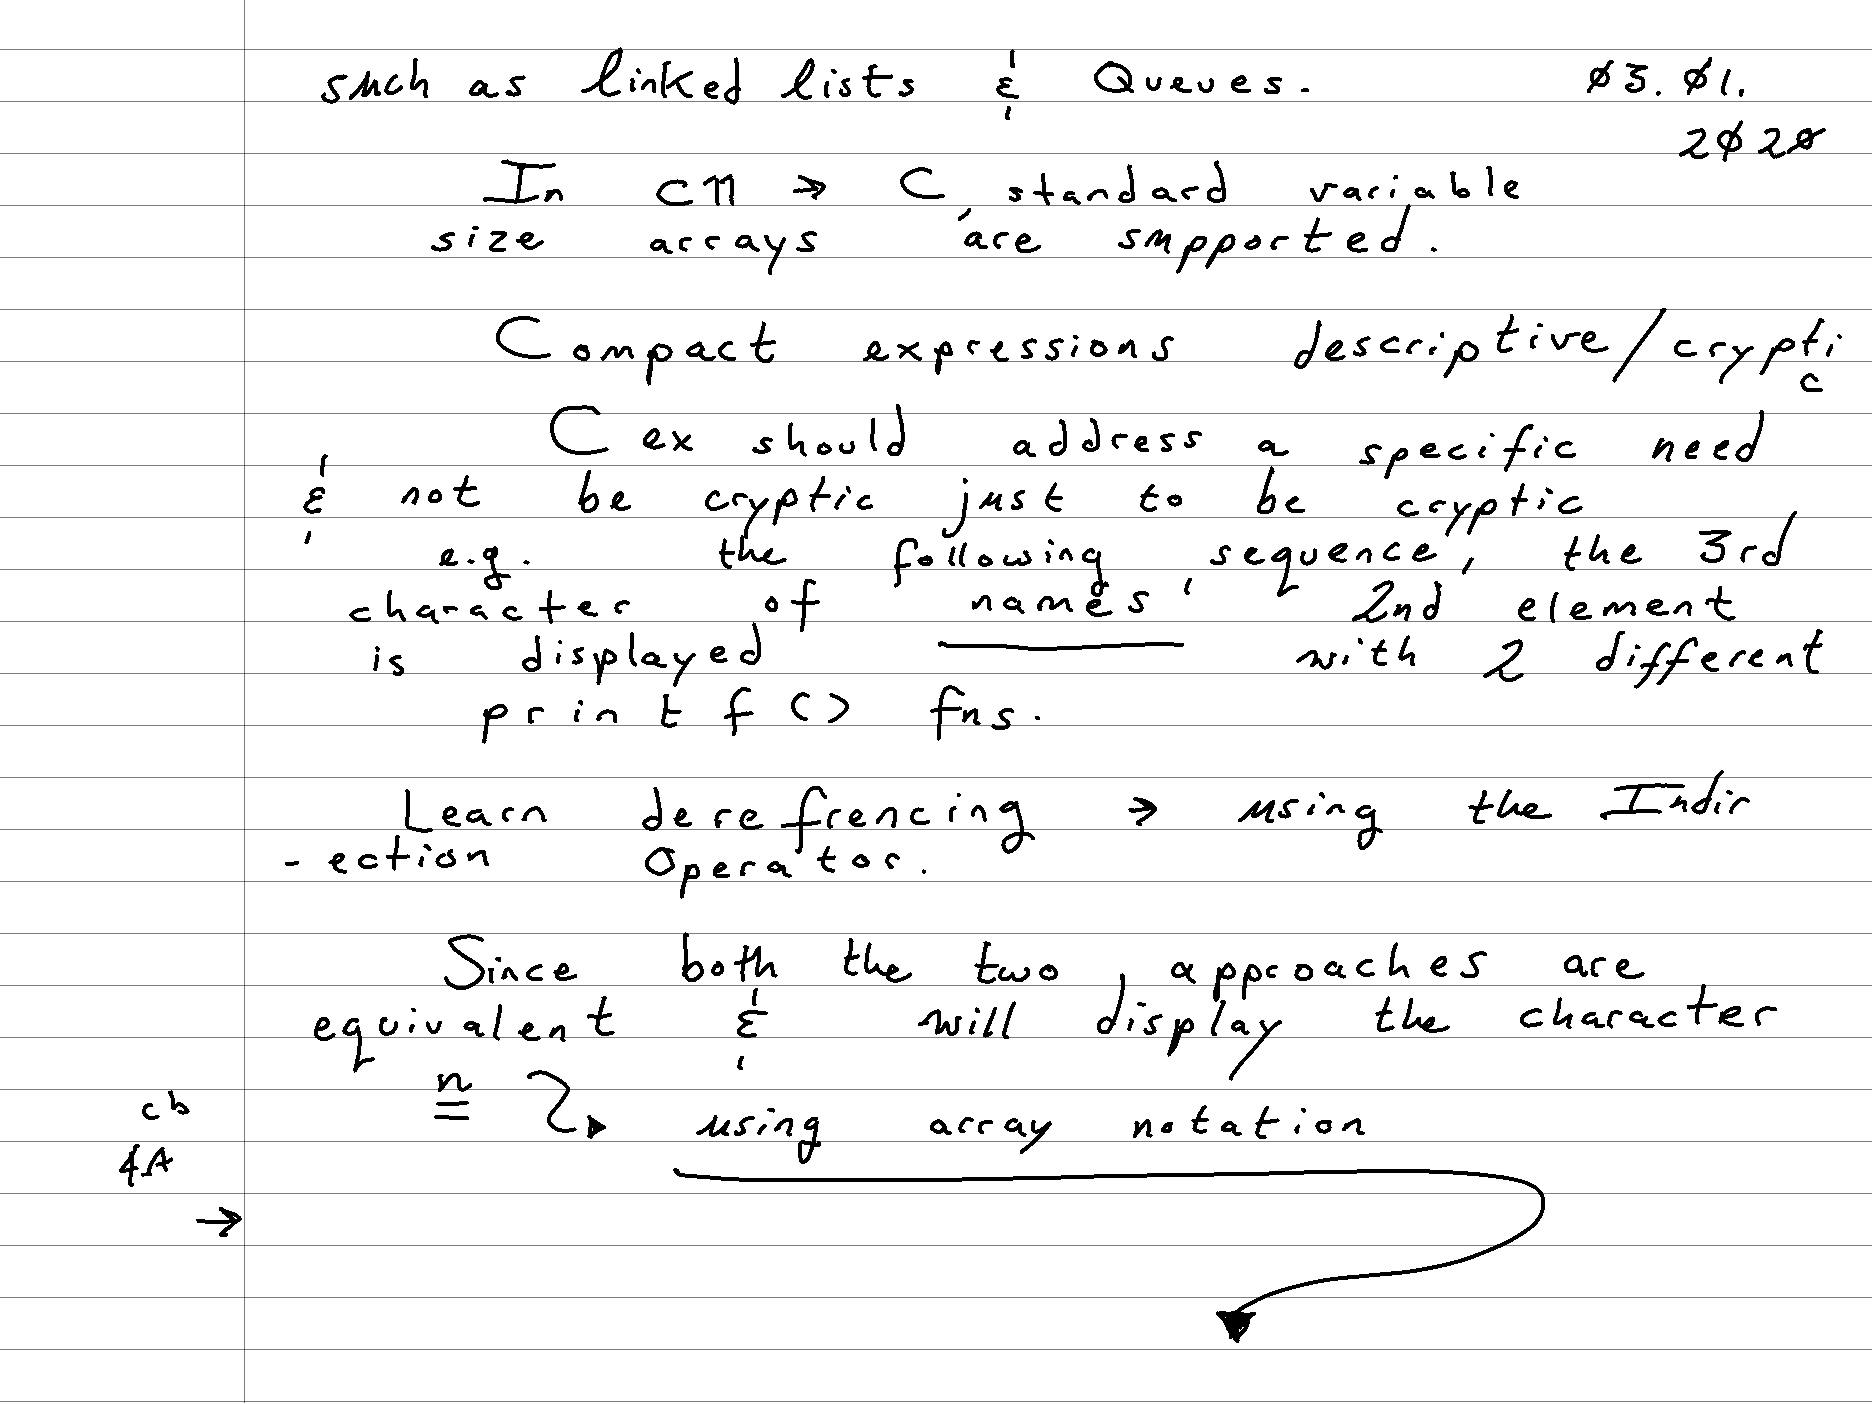 such as linked lists & Queues. 03.01.
2020
In C11 → C standard variable
size arrays are supported.
Compact expressions descriptive/crypti
c
C ex should address a specific need
& not be cryptic just to be cryptic
e.g. the following sequence, the 3rd
character of names' 2nd element
is displayed with 2 different
printf () fns.
Learn derefrencing → using the Indir
- ection Operator.
Since both the two approaches are
equivalent & will display the character
n
using array notation
cb
4A
→